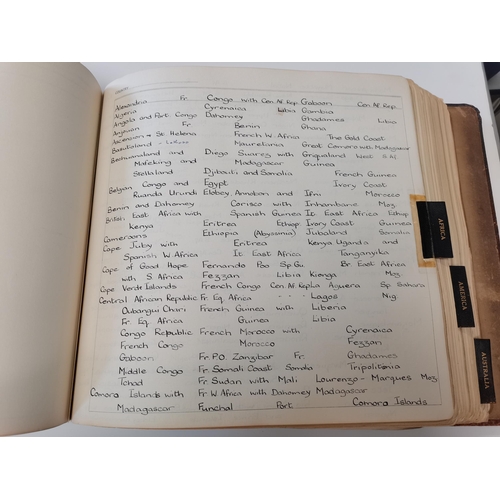 Alexandria Fr. Congo with Cen. Af. Rep. Gaboon Cen. Af. Rep.
Algeria Cyrenaica Libia Gambia
Angola and Port. Congo Dahomey Ghadames Libia
Anjouan Fr Benin Ghana
Ascension & St. Helena French W. Africa The Gold Coast
Basutoland - Mauretania Great Comoro with Madagascar
Bechuanaland and Diego Suarez with Griqualand West S.Af
Mafeking and Madagascar Guinea
Stellaland Djibouti and Somalia French Guinea
Belgian Congo and Egypt Ivory Coast
Ruanda Urundi Elobey, Annobon and Ifni Morocco
Benin and Dahomey Corisco with Inhambane Moz
British East Africa with Spanish Guinea It. East Africa Ethiop
Kenya Eritrea Ethiop. Ivory Coast Guinea
Cameroons Ethiopia (Abyssinia) Jubaland Somalia
Cape Juby with Eritrea Kenya Uganda and
Spanish W Africa It. East Africa Tanganyika
Cape of Good Hope Fernando Poo Sp Gu. Br. East Africa
with S Africa Fezzan Libia Kionga Moz
Cape Verdt Islands French Congo Cen Af Rep La Aguera Sp Sahara
Central African Republic Fr Eq. Africa " " Lagos Nig
Oubangui Chari French Guinea with Liberia
Fr. Eq. Africa Guinea Libia
Congo Republic French Morocco with Cyrenaica
French Congo Morocco Fezzan
Gaboon Fr. P.O. Zanzibar Fr. Ghadames
Middle Congo Fr. Somali Coast Somalia Tripolitania
Tchad Fr Sudan with Mali Lourenzo-Marques Moz
Comoro Islands with Fr W Africa with Dahomey Madagascar
Madagascar Funchal Port Comoro Islands
AFRICA
AMERICA
AUSTRALIA